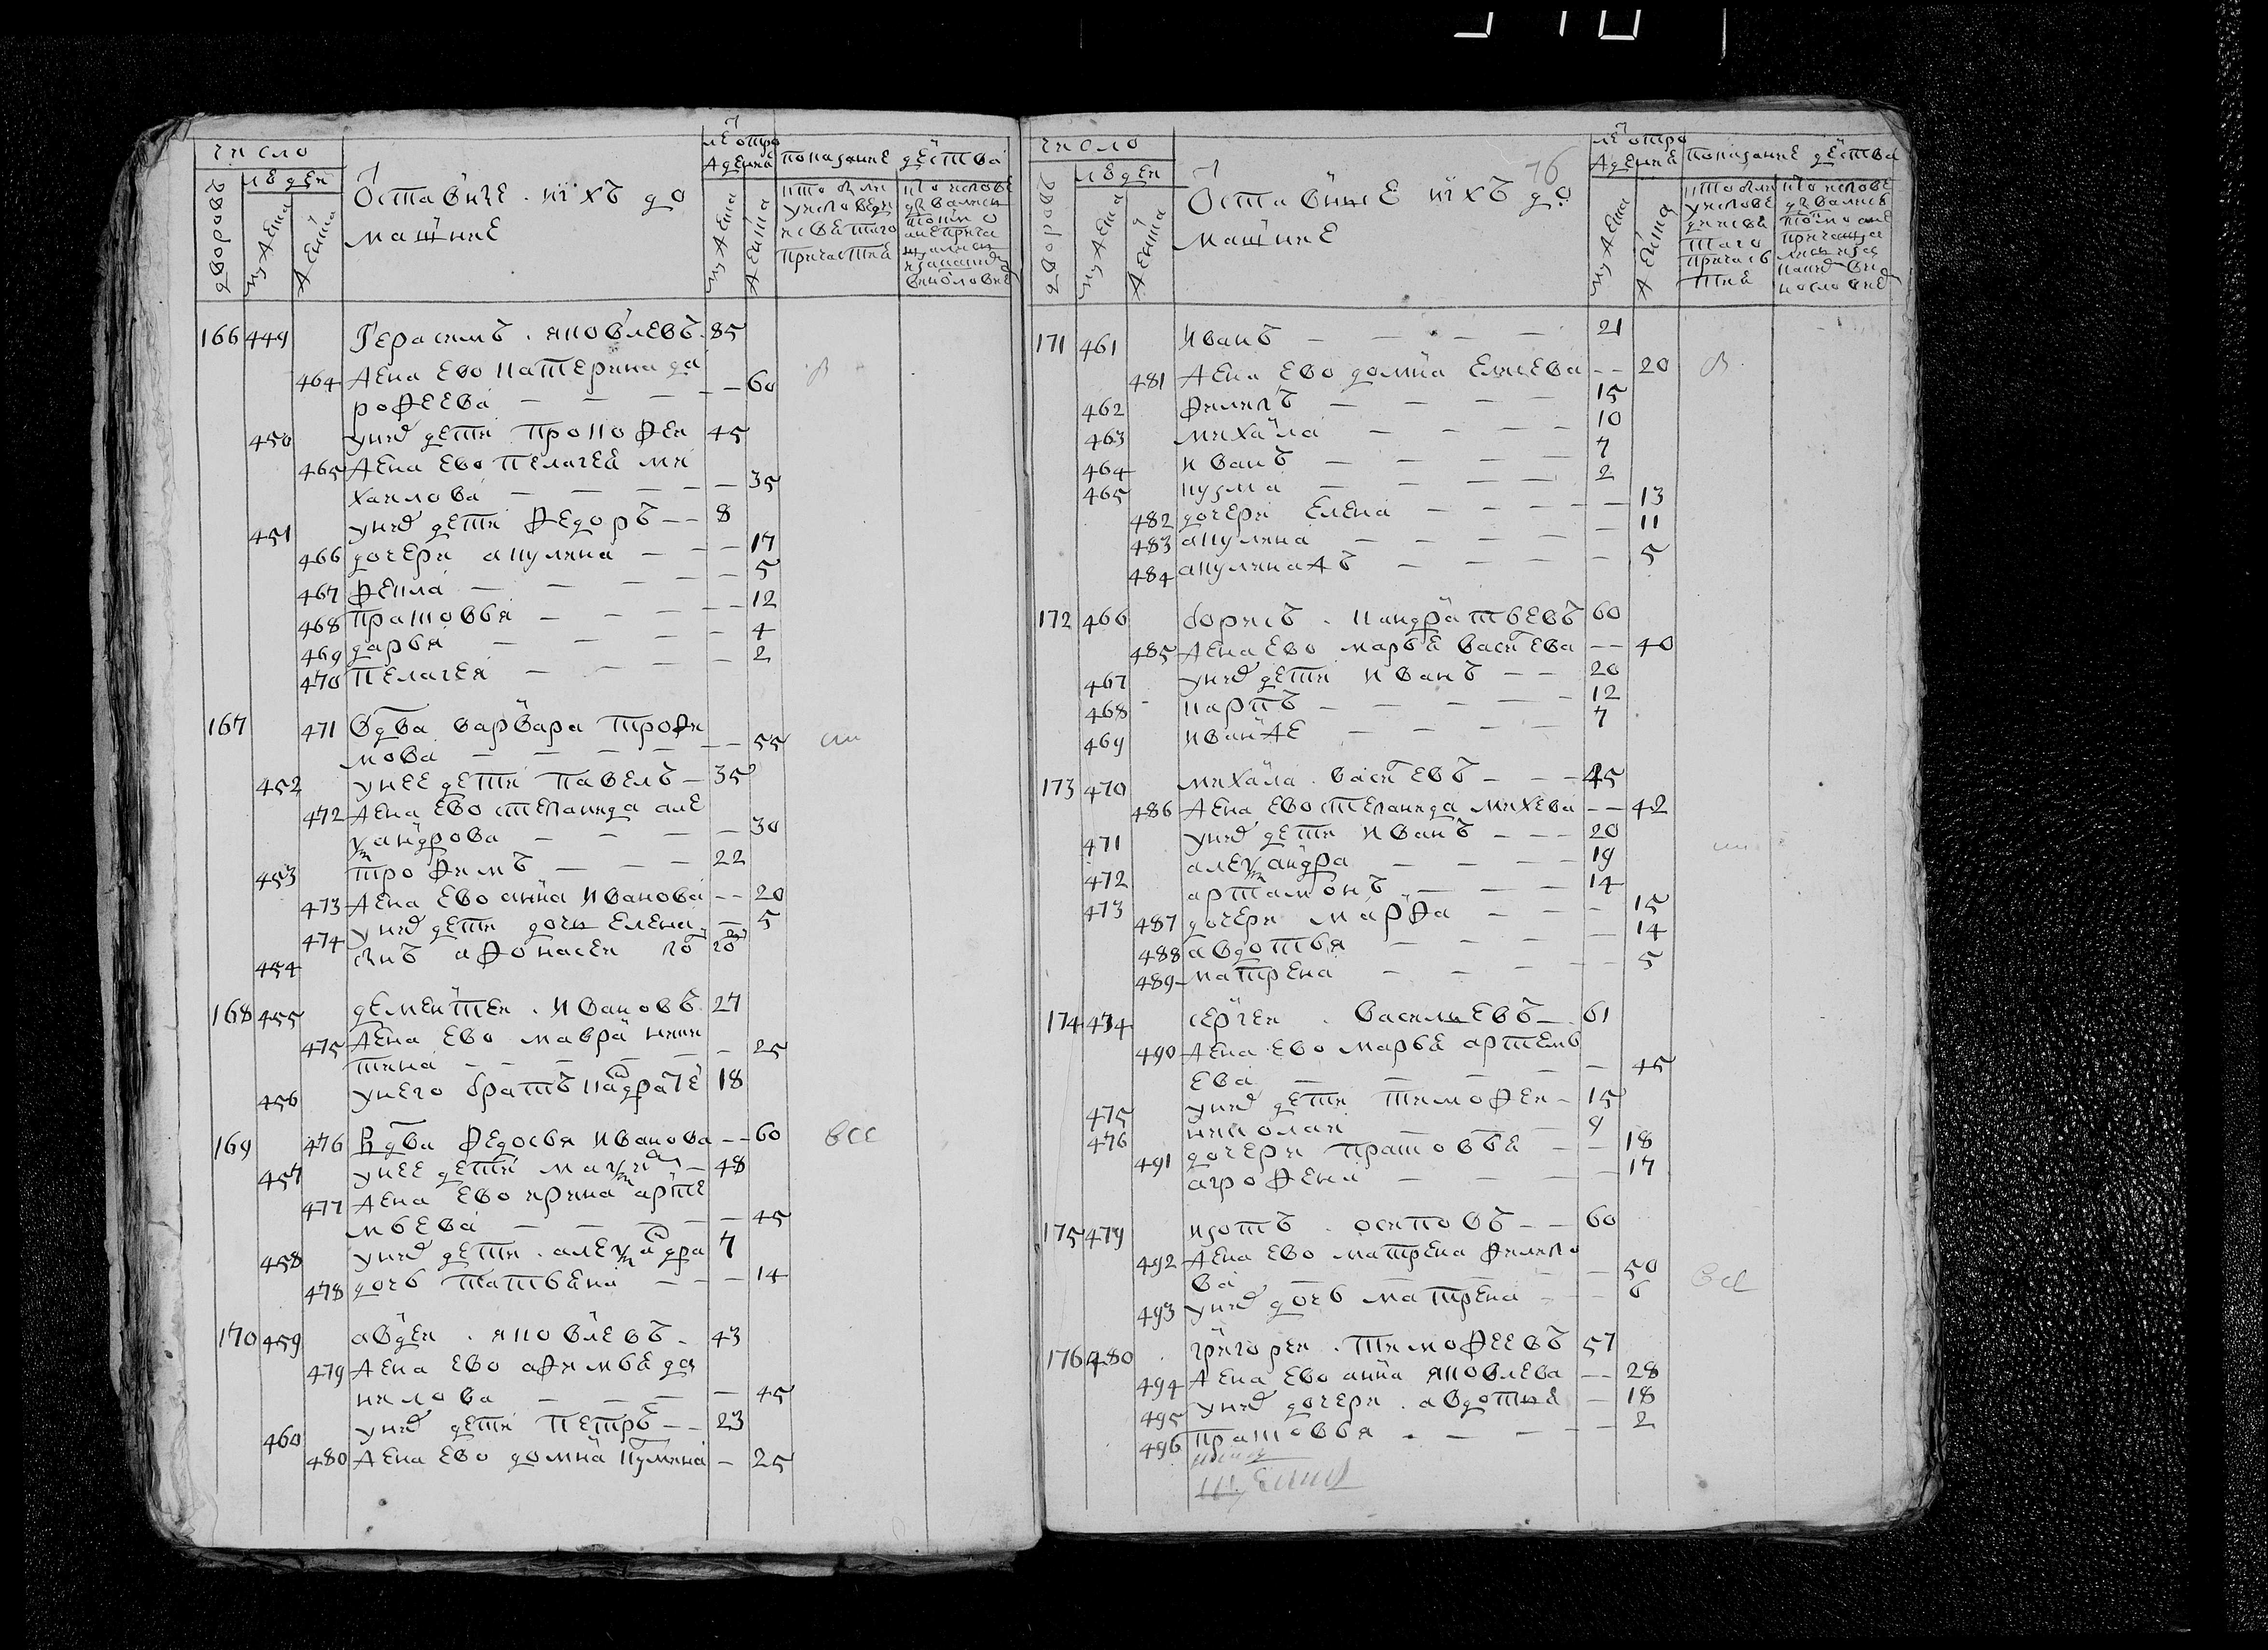 число
людеи
дворовъ
мужеска
женска
Оставшие иихъ до
машние
лѣ от ро
ждениѧ
мужеска
женска
показание действа
76
166 449 Герасимъ яковлевъ 85
464 жена ево катерина да
рофеева — — — — 60
450 унево дети прокофеи 45
465 жена ево пелагея ми
хаилова — — — — 35
451 унево дети федоръ — — 8
466 дочери акулина — — — 17
467 фекла — — — — 5
468 прасковья — — — — 12
469 дарья — — — — 4
470 пелагея — — — — 2
167 471 Вдва варвара трофи
мова — — — — 55
452 унее дети павелъ — 35
472 жена ево степанида але
ѯандрова — — — — 30
453 трофимъ — — — 22
473 жена ево анна иванова — — 20
474 унево дети дочь елена — 5
454 сынъ афонасеи
168 455 дементеи ивановъ 27
475 жена ево мавра ники
тина — — — — 25
456 унего братъ кадрате 18
169 476 Вдва федосья иванова — — 60 все
457 унее дети маѯим — 48
477 жена ево ирина арте
мьева — — — — 45
458 унево дети алеѯадра 7
478 дочь татьяна — — — 14
170 459 авдеи яковлевъ 43
479 жена ево афимья да
нилова — — — — 45
460 унево дети петръ — — 23
480 жена ево домна кумина — 25
число
людеи
дворовъ
мужеска
женска
Оставшие иихъ до
машние
лѣ от ро
ждениѧ
мужеска
женска
показание действа
171 461 иванъ — — — — 21
481 жена ево домна елисева — — 20
462 филипъ — — — — 15
463 михаила — — — — 10
464 иванъ — — — — 7
465 кузма — — — — 2
482 дочери елена — — — — 13
483 акулина — — — — 11
484 акулина жъ — — — — 5
172 466 борисъ кандратьевъ 60
485 жена ево марья васиева — — 40
467 унево дети иванъ — — 20
468 карпъ — — — — 12
469 иванже — — — — 7
173 470 михаила васиевъ — — — 45
486 жена ево степанида михева — — 42
471 унево дети иванъ — — — 20
472 алеѯандра — — — — 19
473 артамонъ — — — 14
487 дочери марфа — — — 15
488 авдотья — — — — 14
489 матрена — — — — 5
174 474 сергеи васильевъ — 61
490 жена ево марья артемь
ева — — — — 45
475 унево дети тимофеи — 15
476 николаи — — 9
491 дочери прасковья — — 18
агрофена — — — — 17
175 479 изотъ осиповъ — — 60
492 жена ево матрена филипо
ва — — — — 50 все
493 унево дочь матрена — — 6
176 480 григореи тимофеевъ 57
494 жена ево анна яковлева — — 28
495 унево дочери авдотья — 18
496 прасковья — — — 2